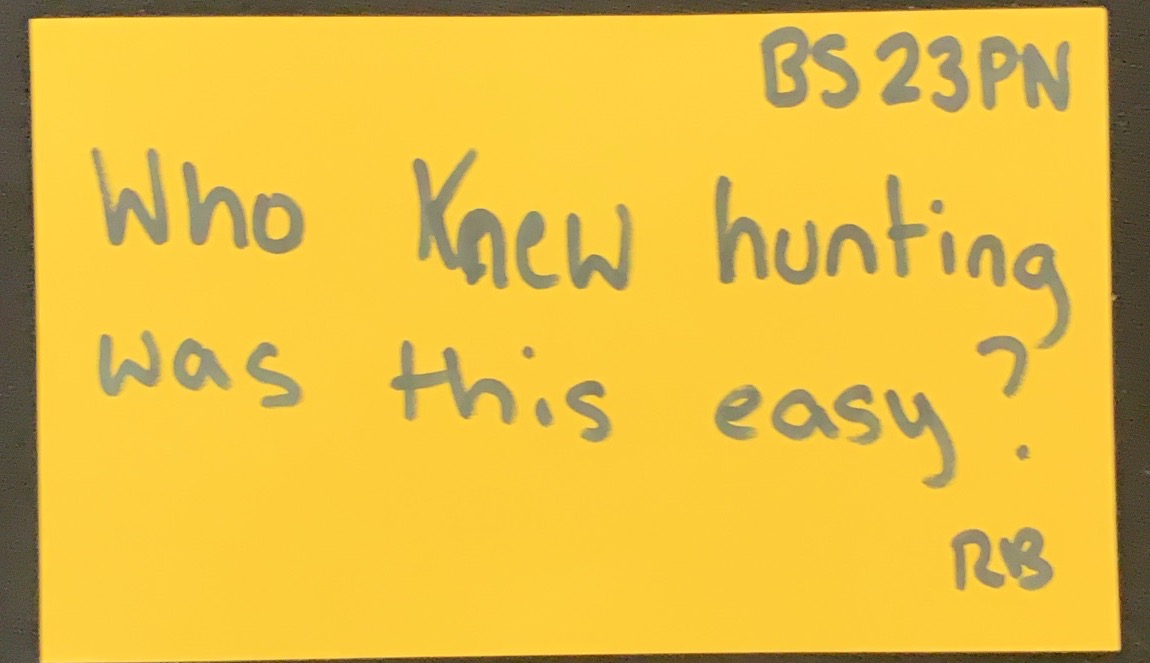 BS23PN
Who Knew hunting
was this easy?
RB